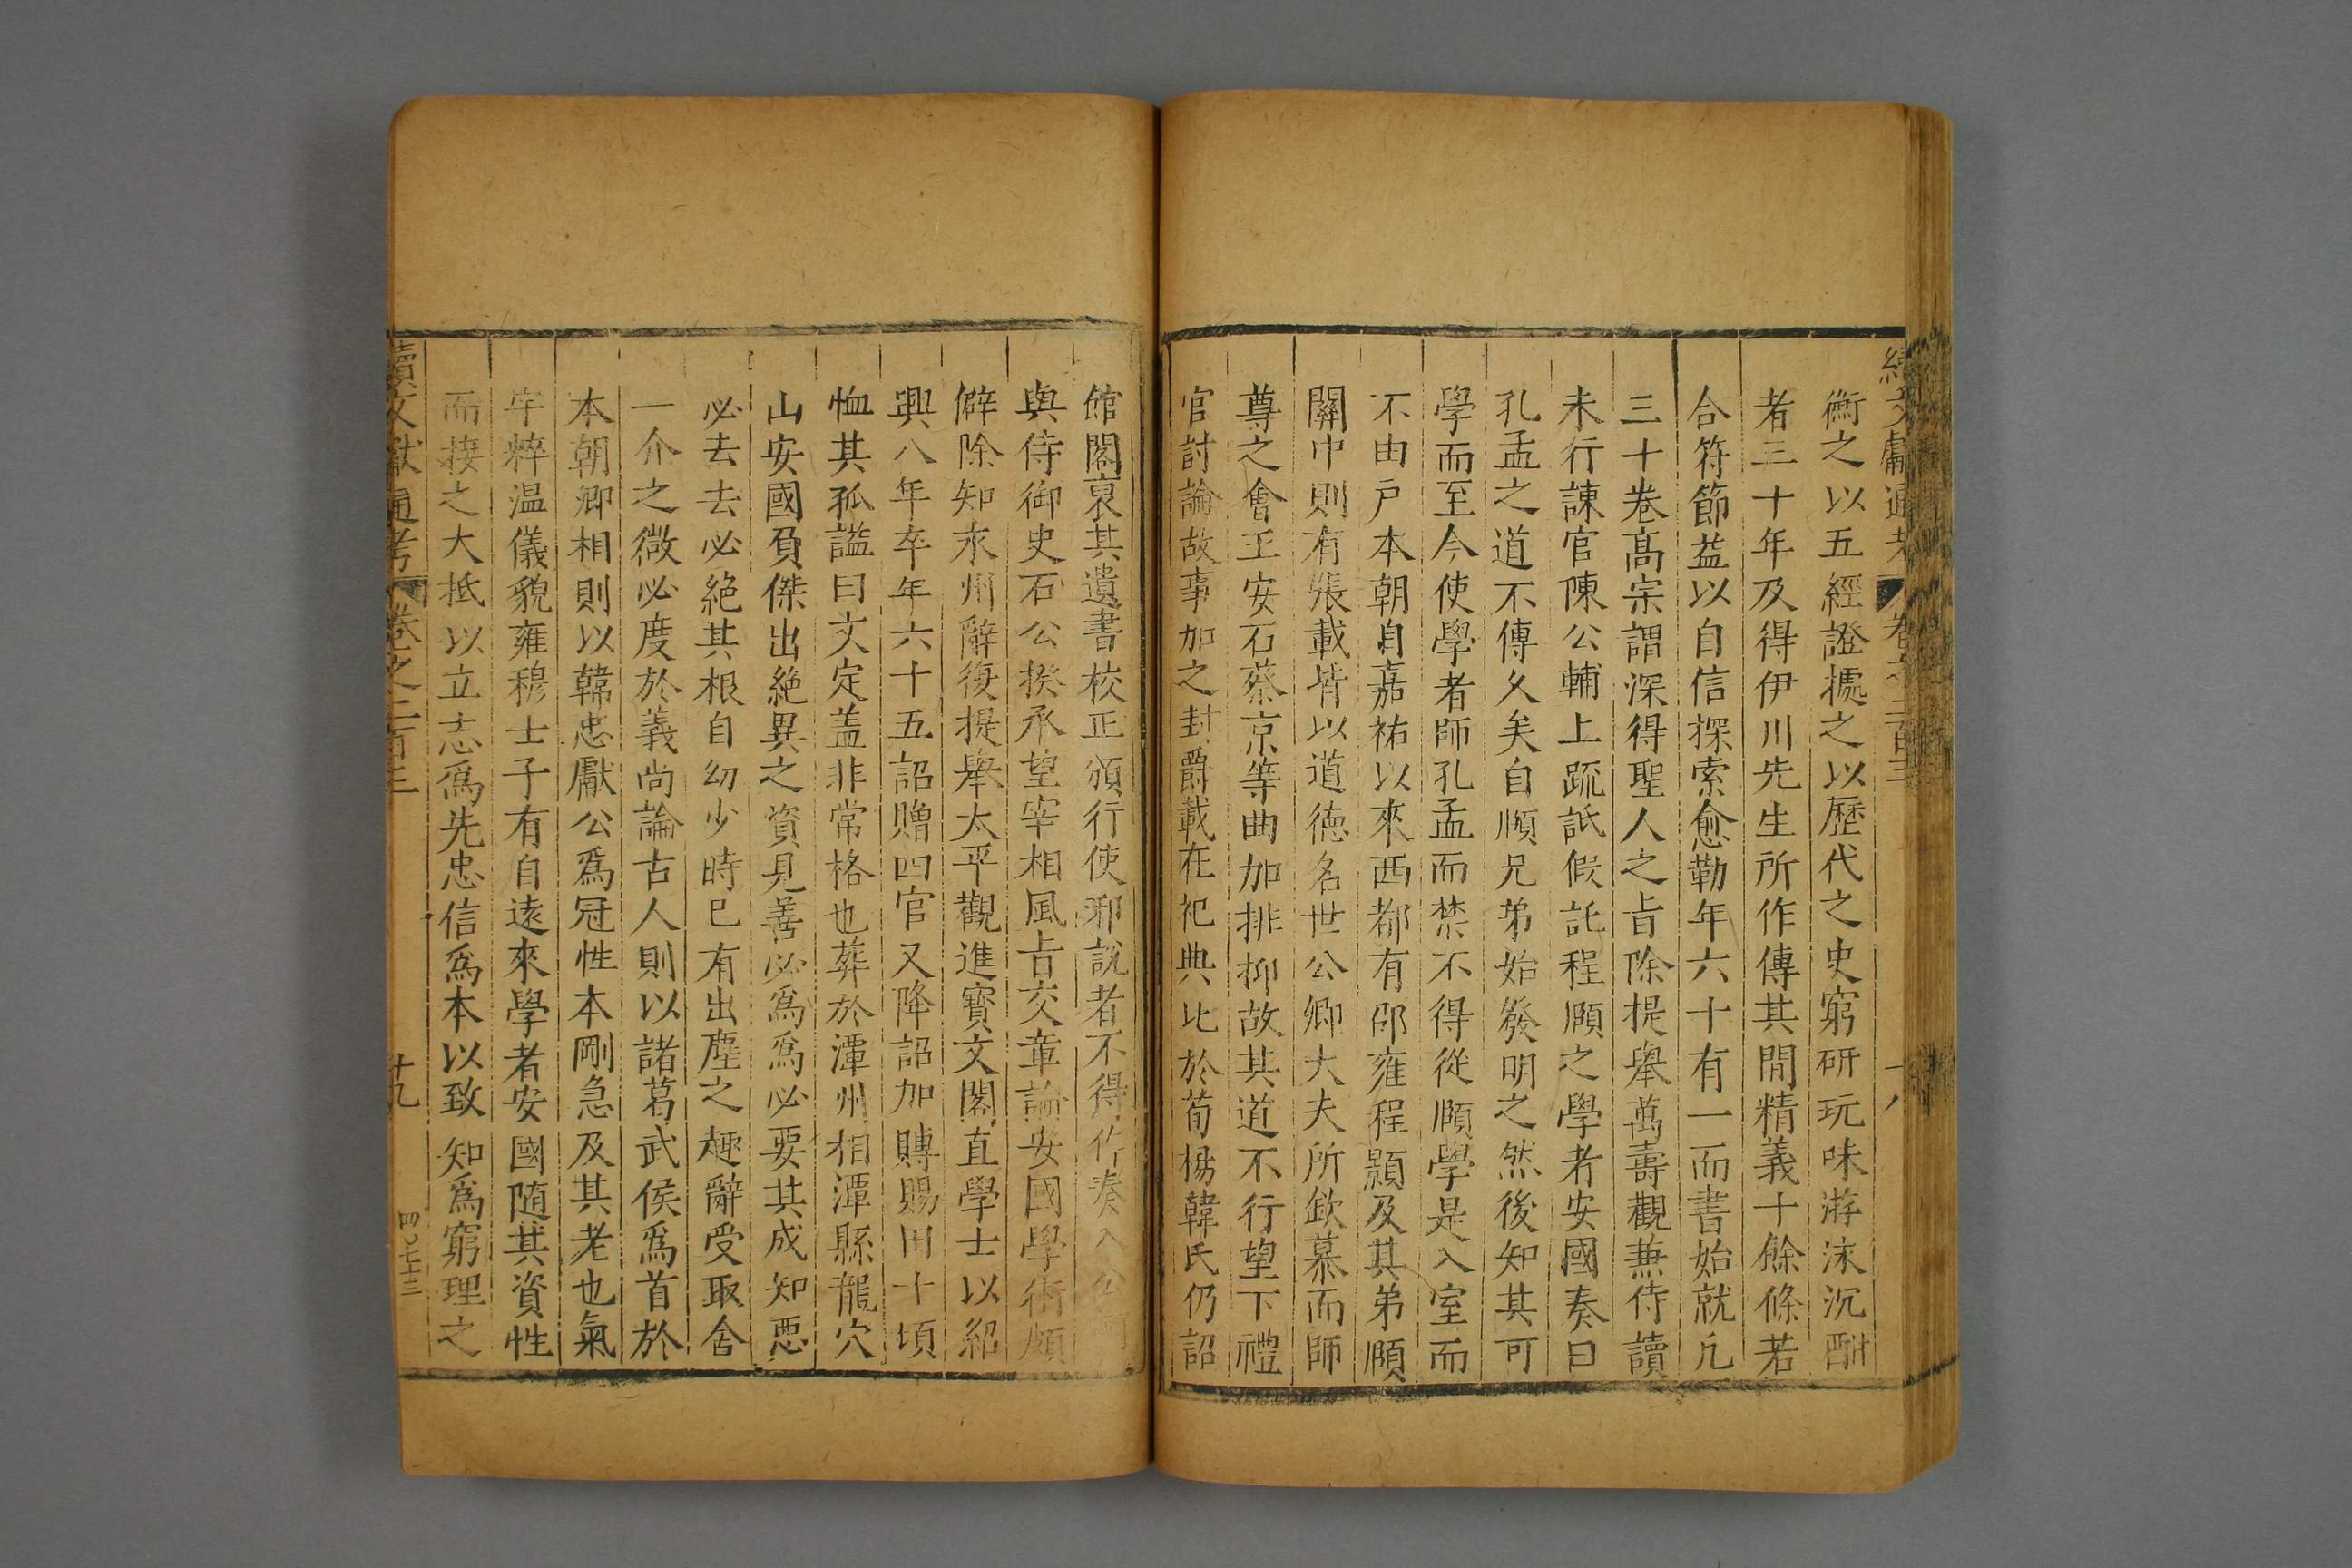 續文獻通考 卷之二百三 十八
衡之以五經證據之以歷代之史窮研玩味游泳沉酣
者三十年及得伊川先生所作傳其間精義十餘條若
合符節益以自信探索愈勤年六十有一而書始就凡
三十卷髙宗謂深得聖人之旨除提舉萬壽觀兼侍讀
未行諫官陳公輔上疏詆假託程頥之學者安國奏曰
孔孟之道不傳久矣自頥兄弟始發明之然後知其可
學而至今使學者師孔孟而禁不得從頥學是入室而
不由戸本朝自嘉祐以來西都有邵雍程顥及其弟頥
關中則有張載皆以道德名世公卿大夫所欽慕而師
尊之會王安石蔡京等曲加排抑故其道不行望下禮
官討論故事加之封爵載在祀典比於荀楊韓氏仍詔
館閣裒其遺書校正頒行使邪說者不得作奏入公輔
與侍御史石公揆承望宰相風旨交章論安國學術頗
僻除知永州辭復提舉太平觀進寳文閣直學士以紹
興八年卒年六十五詔贈四官又降詔加賻賜田十頃
恤其孤謚曰文定盖非常格也葬於潭州相潭縣龍穴
山安國負傑出絶異之資見善必爲爲必要其成知惡
必去去必絕其根自幼少時已有出塵之趣辭受取舍
一介之微必度於義尚論古人則以諸葛武侯爲首於
本朝卿相則以韓忠獻公爲冠性本剛急及其老也氣
宇粹温儀貌雍穆士子有自遠來學者安國随其資性
而接之大抵以立志爲先忠信爲本以致知爲窮理之
續文獻通考 卷之二百三 十九 四〇七十三